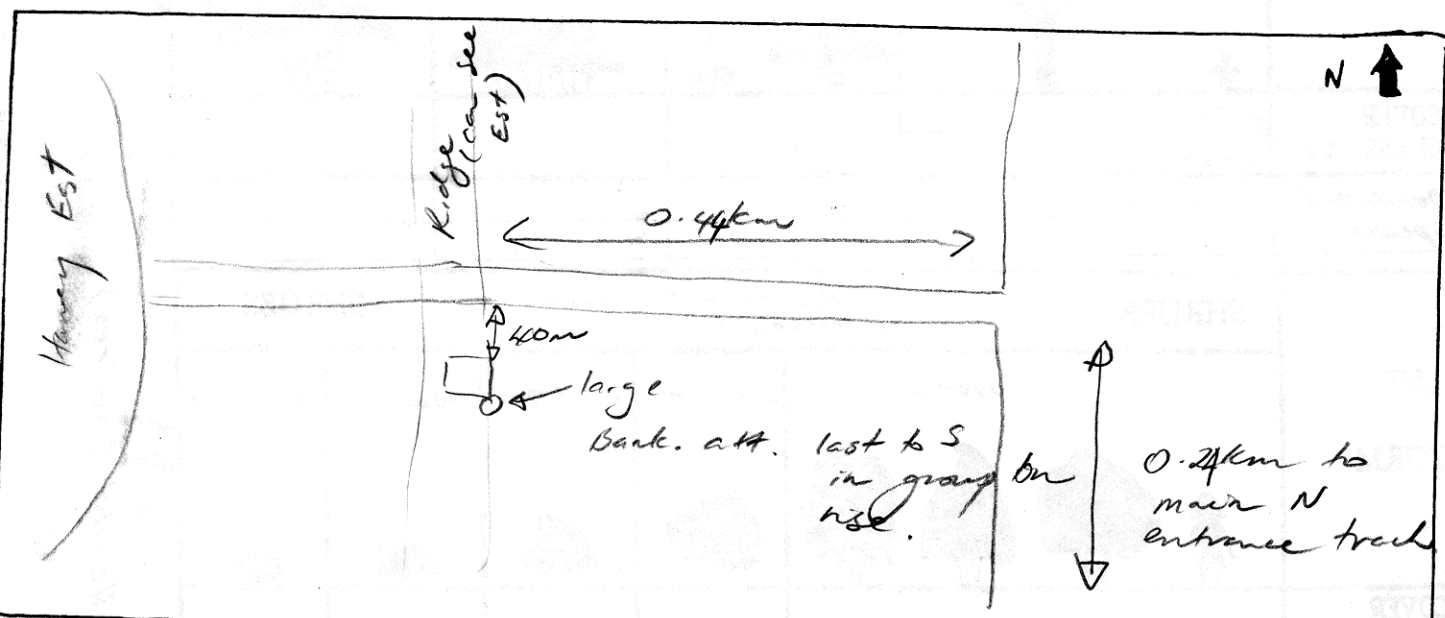 N
Harvey Est
Ridge
(can see
Est)
0.44km
40m
large
Bank. att. last to S
in group on
rise.
0.24km to
main N
entrance track
COVER